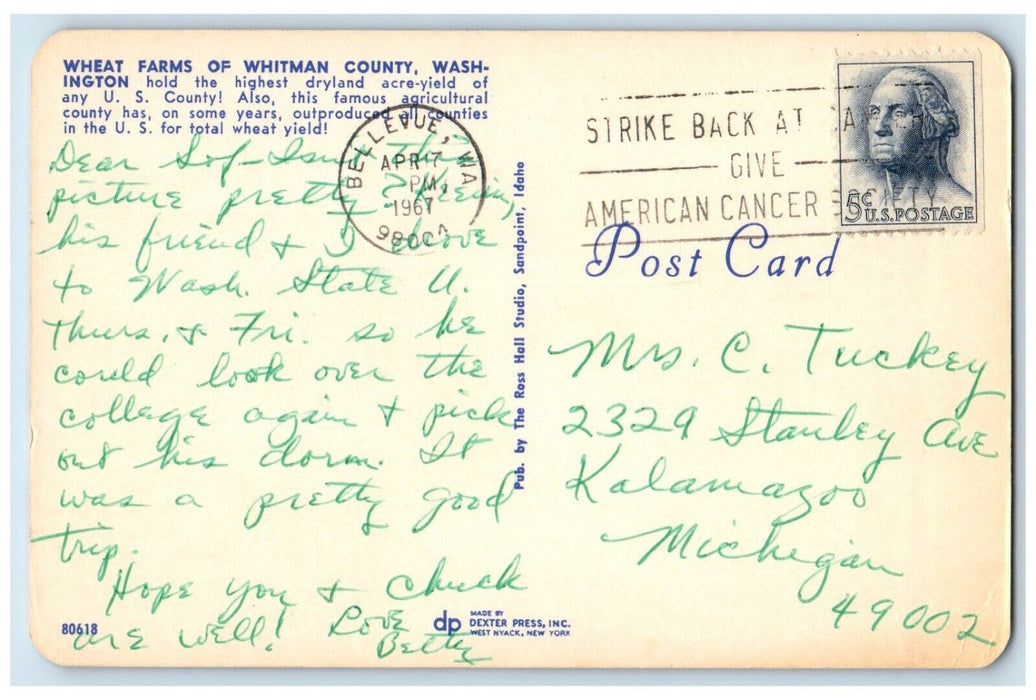 WHEAT FARMS OF WHITMAN COUNTY, WASH-
INGTON hold the highest dryland acre-yield of
any U. S. County! Also, this famous agricultural
county has, on some years, outproduced all counties
in the U. S. for total wheat yield!
Dear Sof-Isn't this
picture pretty?
his friend & I drove
to Wash. State U.
Thurs. & Fri. so he
could look over the
college again & pick
out his dorm. It
was a pretty good
trip.
Hope you & Chuck
are well! Love
Betty
80618
BELLEVUE, WA
APR 17
PM
1967
Pub. by The Ross Hall Studio, Sandpoint, Idaho
dp MADE BY
DEXTER PRESS, INC.
WEST NYACK, NEW YORK
STRIKE BACK AT CANCER
GIVE
AMERICAN CANCER SOCIETY
5c U.S. POSTAGE
Post Card
Mrs. C. Tuckey
2329 Stanley Ave
Kalamazoo
Michigan
49002